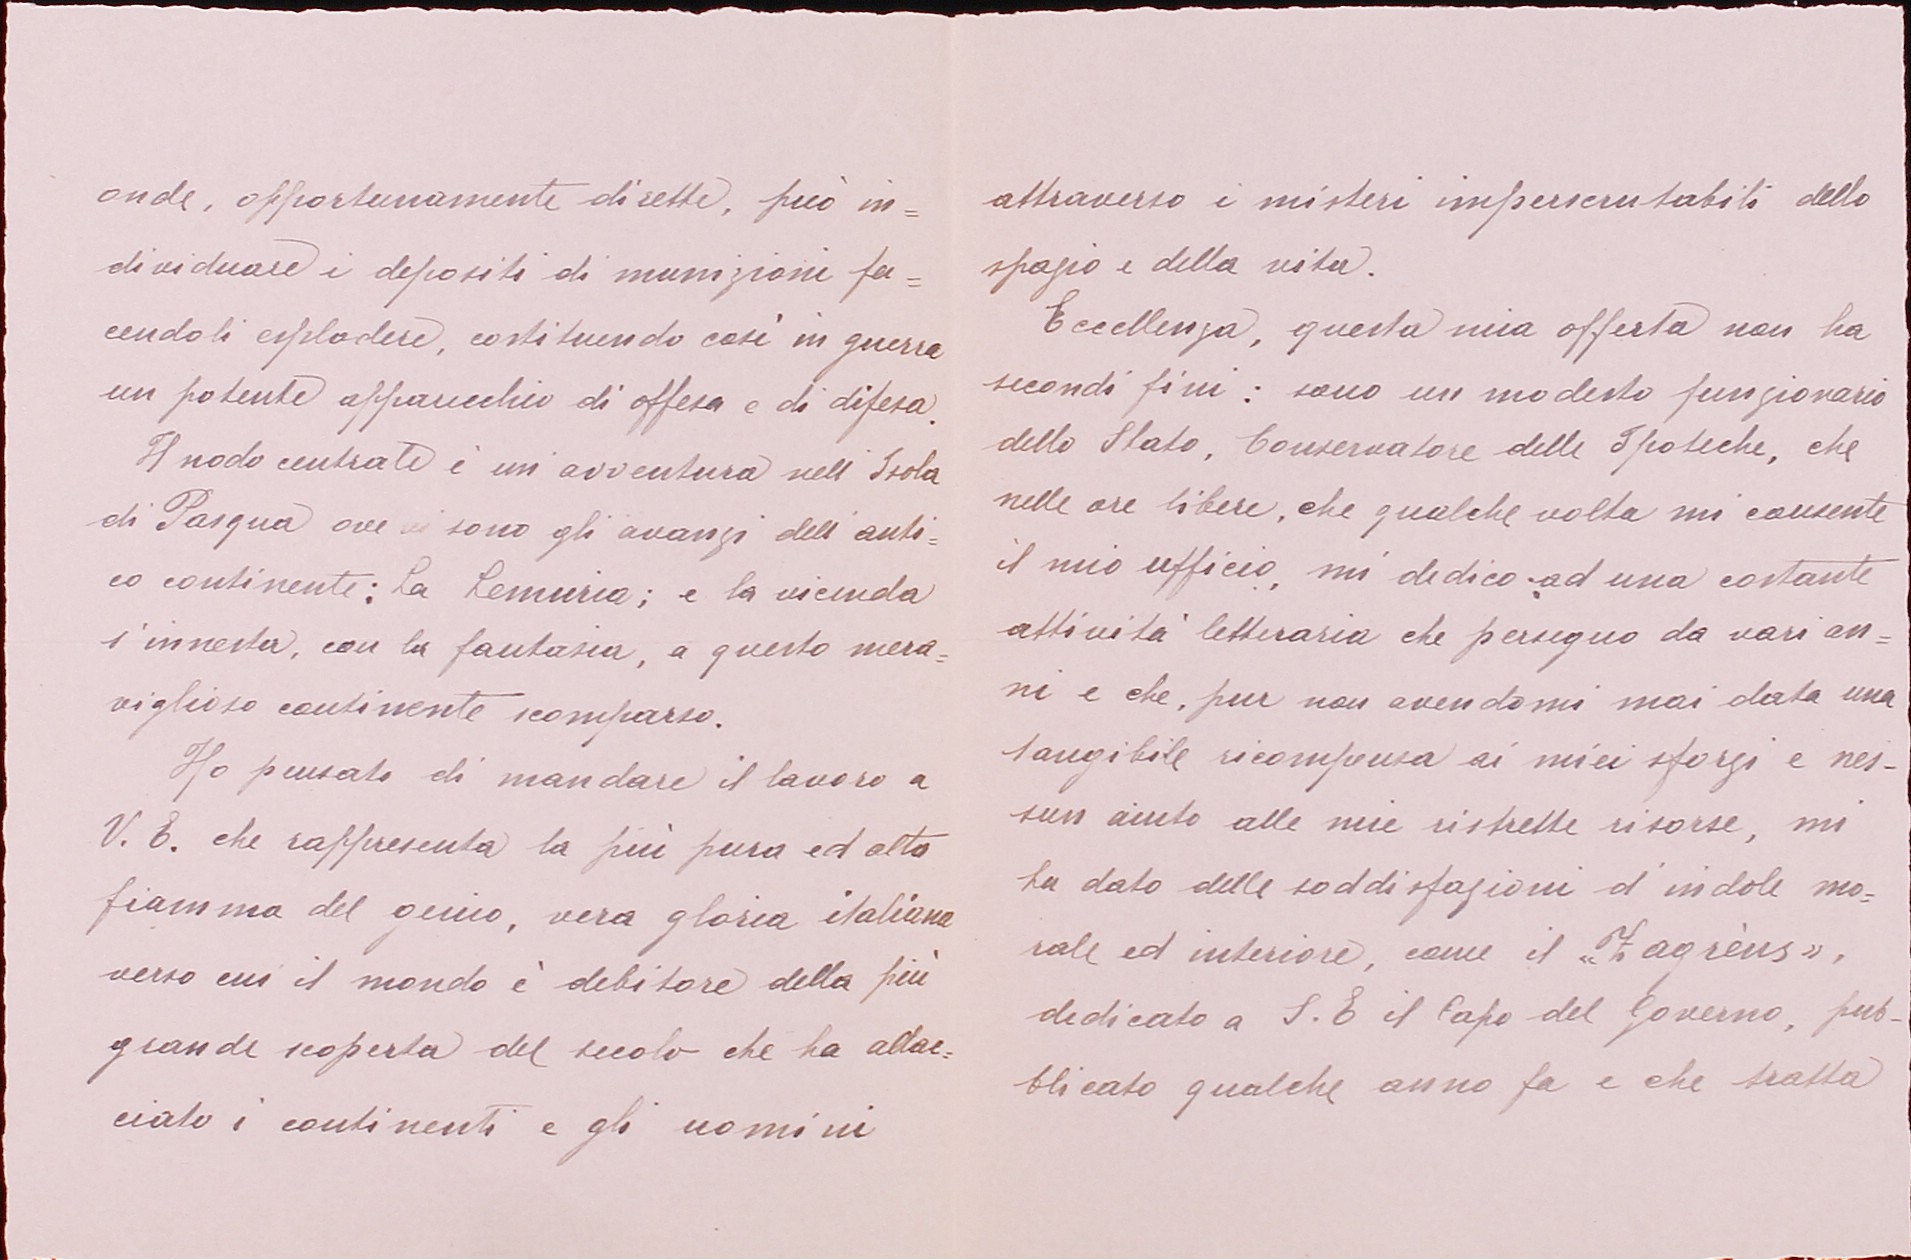 onde, opportunamente dirette, può in=
dividuare i depositi di munizioni fa=
cendoli esplodere, costituendo così in guerra
un potente apparecchio di offesa e di difesa.
Il nodo centrale è un'avventura nell'Isola
di Pasqua ove vi sono gli avanzi dell'anti=
co continente: La Lemuria; e la vicenda
s'innesta, con la fantasia, a questo mera=
viglioso continente scomparso.
Ho pensato di mandare il lavoro a
V. E. che rappresenta la più pura ed alta
fiamma del genio, vera gloria italiana
verso cui il mondo è debitore della più
grande scoperta del secolo che ha allac=
ciato i continenti e gli uomini
attraverso i misteri imperscrutabili dello
spazio e della vita.
Eccellenza, questa mia offerta non ha
secondi fini: sono un modesto funzionario
dello Stato, Conservatore delle Ipoteche, che
nelle ore libere, che qualche volta mi consente
il mio ufficio, mi dedico ad una costante
attività letteraria che perseguo da vari an=
ni e che, pur non avendomi mai data una
tangibile ricompensa ai miei sforzi e nes-
sun aiuto alle mie ristrette risorse, mi
ha dato delle soddisfazioni d'indole mo=
rale ed interiore, come il «Zagrèus»,
dedicato a S. E il Capo del Governo, pub-
blicato qualche anno fa e che tratta